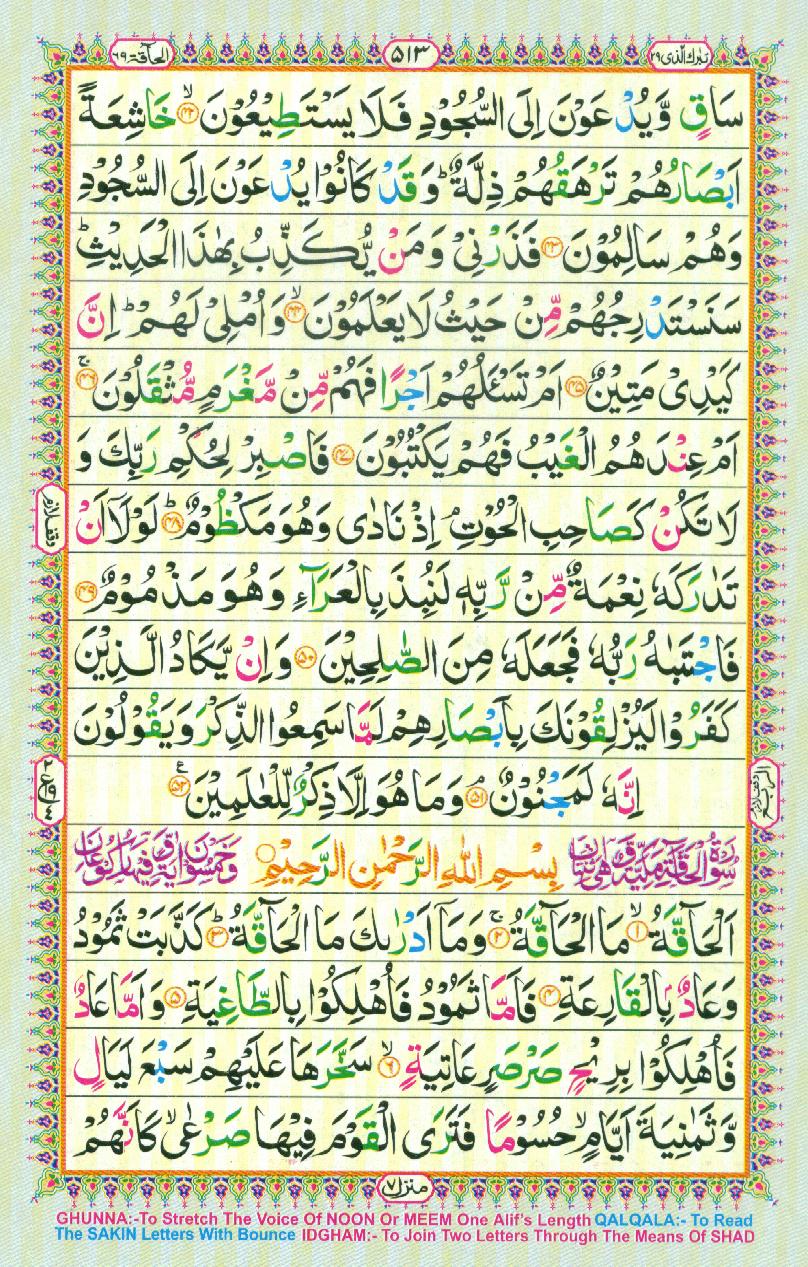 تبٰرك الّذی ۲۹
۵۱۳
الحآقّة ۶۹
سَاقٍ وَّيُدْعَوْنَ اِلَى السُّجُوْدِ فَلَا يَسْتَطِيْعُوْنَ ۙ﴿۴۲﴾ خَاشِعَةً
اَبْصَارُهُمْ تَرْهَقُهُمْ ذِلَّةٌ ؕ وَقَدْ كَانُوْا يُدْعَوْنَ اِلَى السُّجُوْدِ
وَهُمْ سَالِمُوْنَ ﴿۴۳﴾ فَذَرْنِىْ وَمَنْ يُّكَذِّبُ بِهٰذَا الْحَدِيْثِ ؕ
سَنَسْتَدْرِجُهُمْ مِّنْ حَيْثُ لَا يَعْلَمُوْنَ ۙ﴿۴۴﴾ وَاُمْلِىْ لَهُمْ ؕ اِنَّ
كَيْدِىْ مَتِيْنٌ ﴿۴۵﴾ اَمْ تَسْئَلُهُمْ اَجْرًا فَهُمْ مِّنْ مَّغْرَمٍ مُّثْقَلُوْنَ ۚ﴿۴۶﴾
اَمْ عِنْدَهُمُ الْغَيْبُ فَهُمْ يَكْتُبُوْنَ ﴿۴۷﴾ فَاصْبِرْ لِحُكْمِ رَبِّكَ وَ
لَا تَكُنْ كَصَاحِبِ الْحُوْتِ ۘ اِذْ نَادٰى وَهُوَ مَكْظُوْمٌ ؕ﴿۴۸﴾ لَوْلَاۤ اَنْ
تَدٰرَكَهٗ نِعْمَةٌ مِّنْ رَّبِّهٖ لَنُبِذَ بِالْعَرَآءِ وَهُوَ مَذْمُوْمٌ ﴿۴۹﴾
فَاجْتَبٰهُ رَبُّهٗ فَجَعَلَهٗ مِنَ الصّٰلِحِيْنَ ﴿۵۰﴾ وَاِنْ يَّكَادُ الَّذِيْنَ
كَفَرُوْا لَيُزْلِقُوْنَكَ بِاَبْصَارِهِمْ لَمَّا سَمِعُوا الذِّكْرَ وَيَقُوْلُوْنَ
اِنَّهٗ لَمَجْنُوْنٌ ۘ﴿۵۱﴾ وَمَا هُوَ اِلَّا ذِكْرٌ لِّلْعٰلَمِيْنَ ﴿۵۲﴾
سُوْرَةُ الْحَآقَّةِ مَكِّيَّةٌ وَّهِىَ ثِنْتَانِ بِسْمِ اللّٰهِ الرَّحْمٰنِ الرَّحِيْمِ وَخَمْسُوْنَ اٰيَةً وَّفِيْهَا رُكُوْعَانِ
اَلْحَآقَّةُ ۙ﴿۱﴾ مَا الْحَآقَّةُ ۚ﴿۲﴾ وَمَاۤ اَدْرٰىكَ مَا الْحَآقَّةُ ؕ﴿۳﴾ كَذَّبَتْ ثَمُوْدُ
وَعَادٌۢ بِالْقَارِعَةِ ﴿۴﴾ فَاَمَّا ثَمُوْدُ فَاُهْلِكُوْا بِالطَّاغِيَةِ ﴿۵﴾ وَاَمَّا عَادٌ
فَاُهْلِكُوْا بِرِيْحٍ صَرْصَرٍ عَاتِيَةٍ ۙ﴿۶﴾ سَخَّرَهَا عَلَيْهِمْ سَبْعَ لَيَالٍ
وَّثَمٰنِيَةَ اَيَّامٍ ۙ حُسُوْمًا فَتَرَى الْقَوْمَ فِيْهَا صَرْعٰى ۙ كَاَنَّهُمْ
منزل ۷
GHUNNA:-To Stretch The Voice Of NOON Or MEEM One Alif's Length QALQALA:- To Read
The SAKIN Letters With Bounce IDGHAM:- To Join Two Letters Through The Means Of SHAD